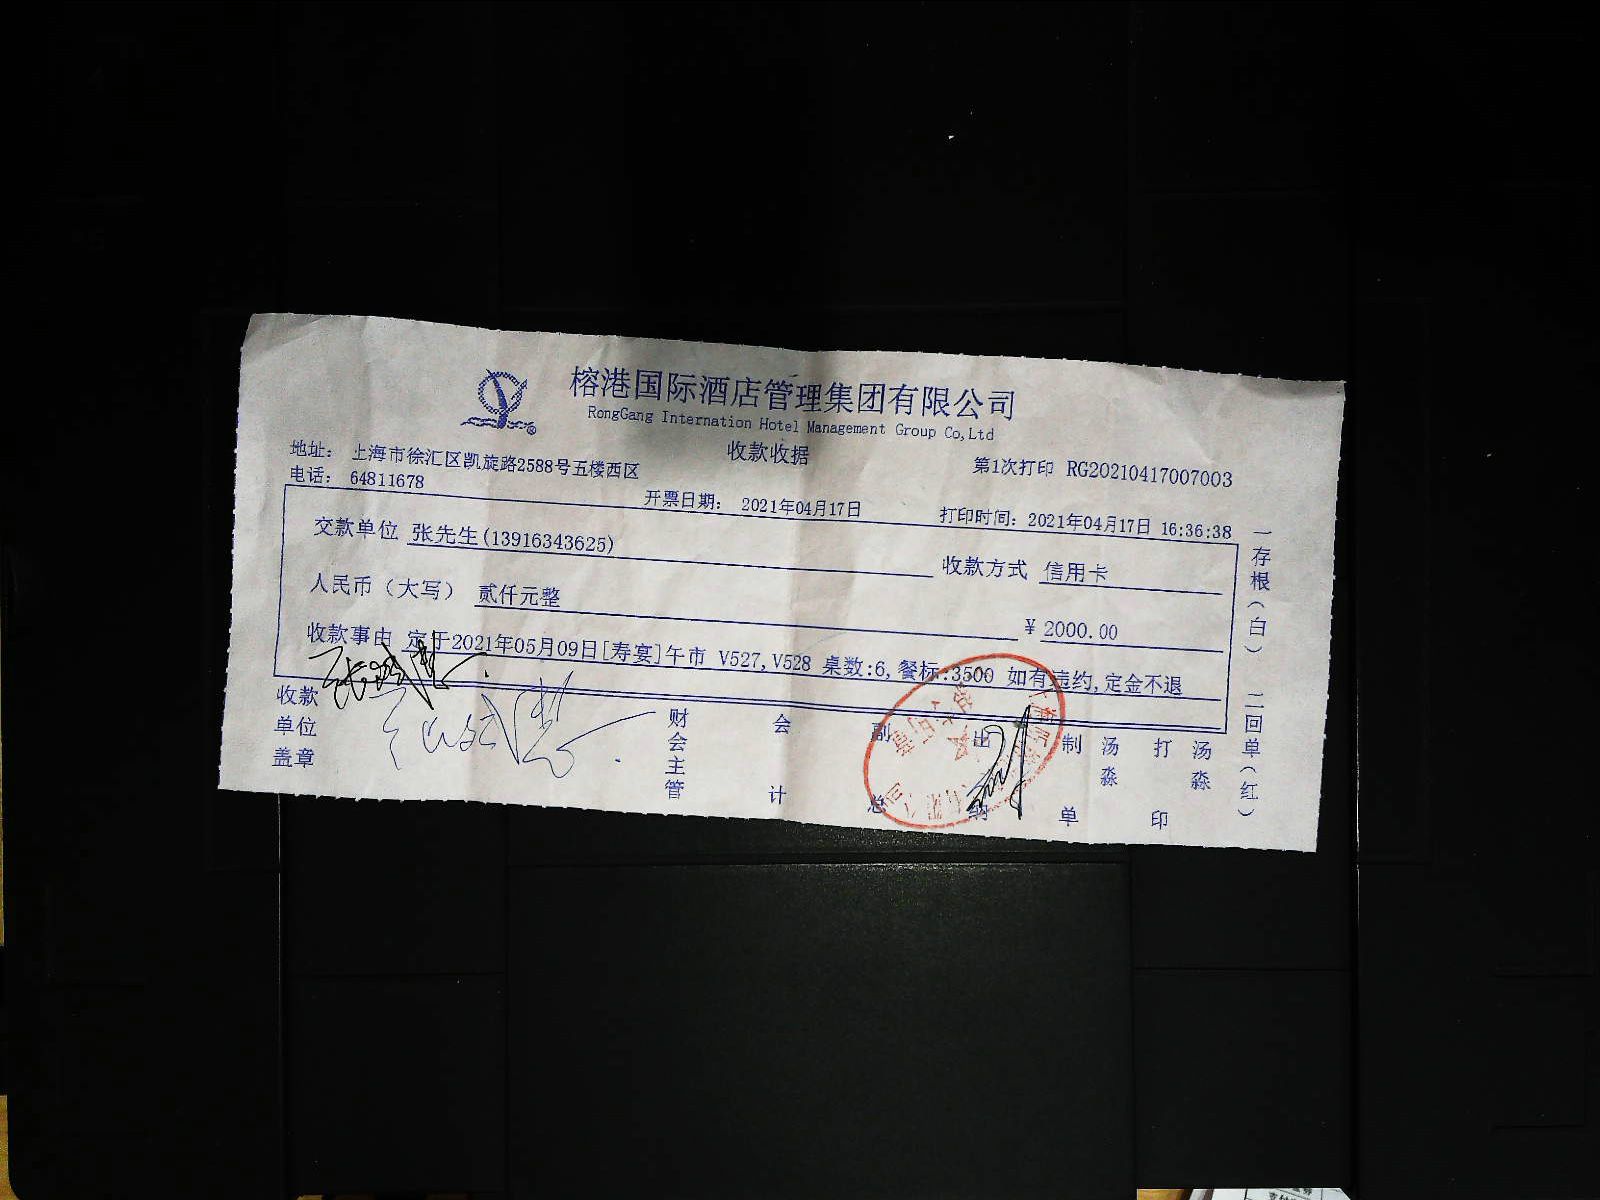 榕港国际酒店管理集团有限公司
RongGang International Hotel Management Group Co,Ltd
收款收据
地址： 上海市徐汇区凯旋路2588号五楼西区
第1次打印 RG20210417007003
电话： 64811678
开票日期： 2021年04月17日
打印时间：2021年04月17日 16:36:38
交款单位 张先生(13916343625)
收款方式 信用卡
人民币（大写） 贰仟元整
￥ 2000.00
收款事由 定于2021年05月09日[寿宴]午市 V527,V528 桌数:6,餐标:3500 如有违约,定金不退
收款单位盖章
财会主管
会计
副总
出纳
制单
汤淼
打印
汤淼
一存根（白） 二回单（红）